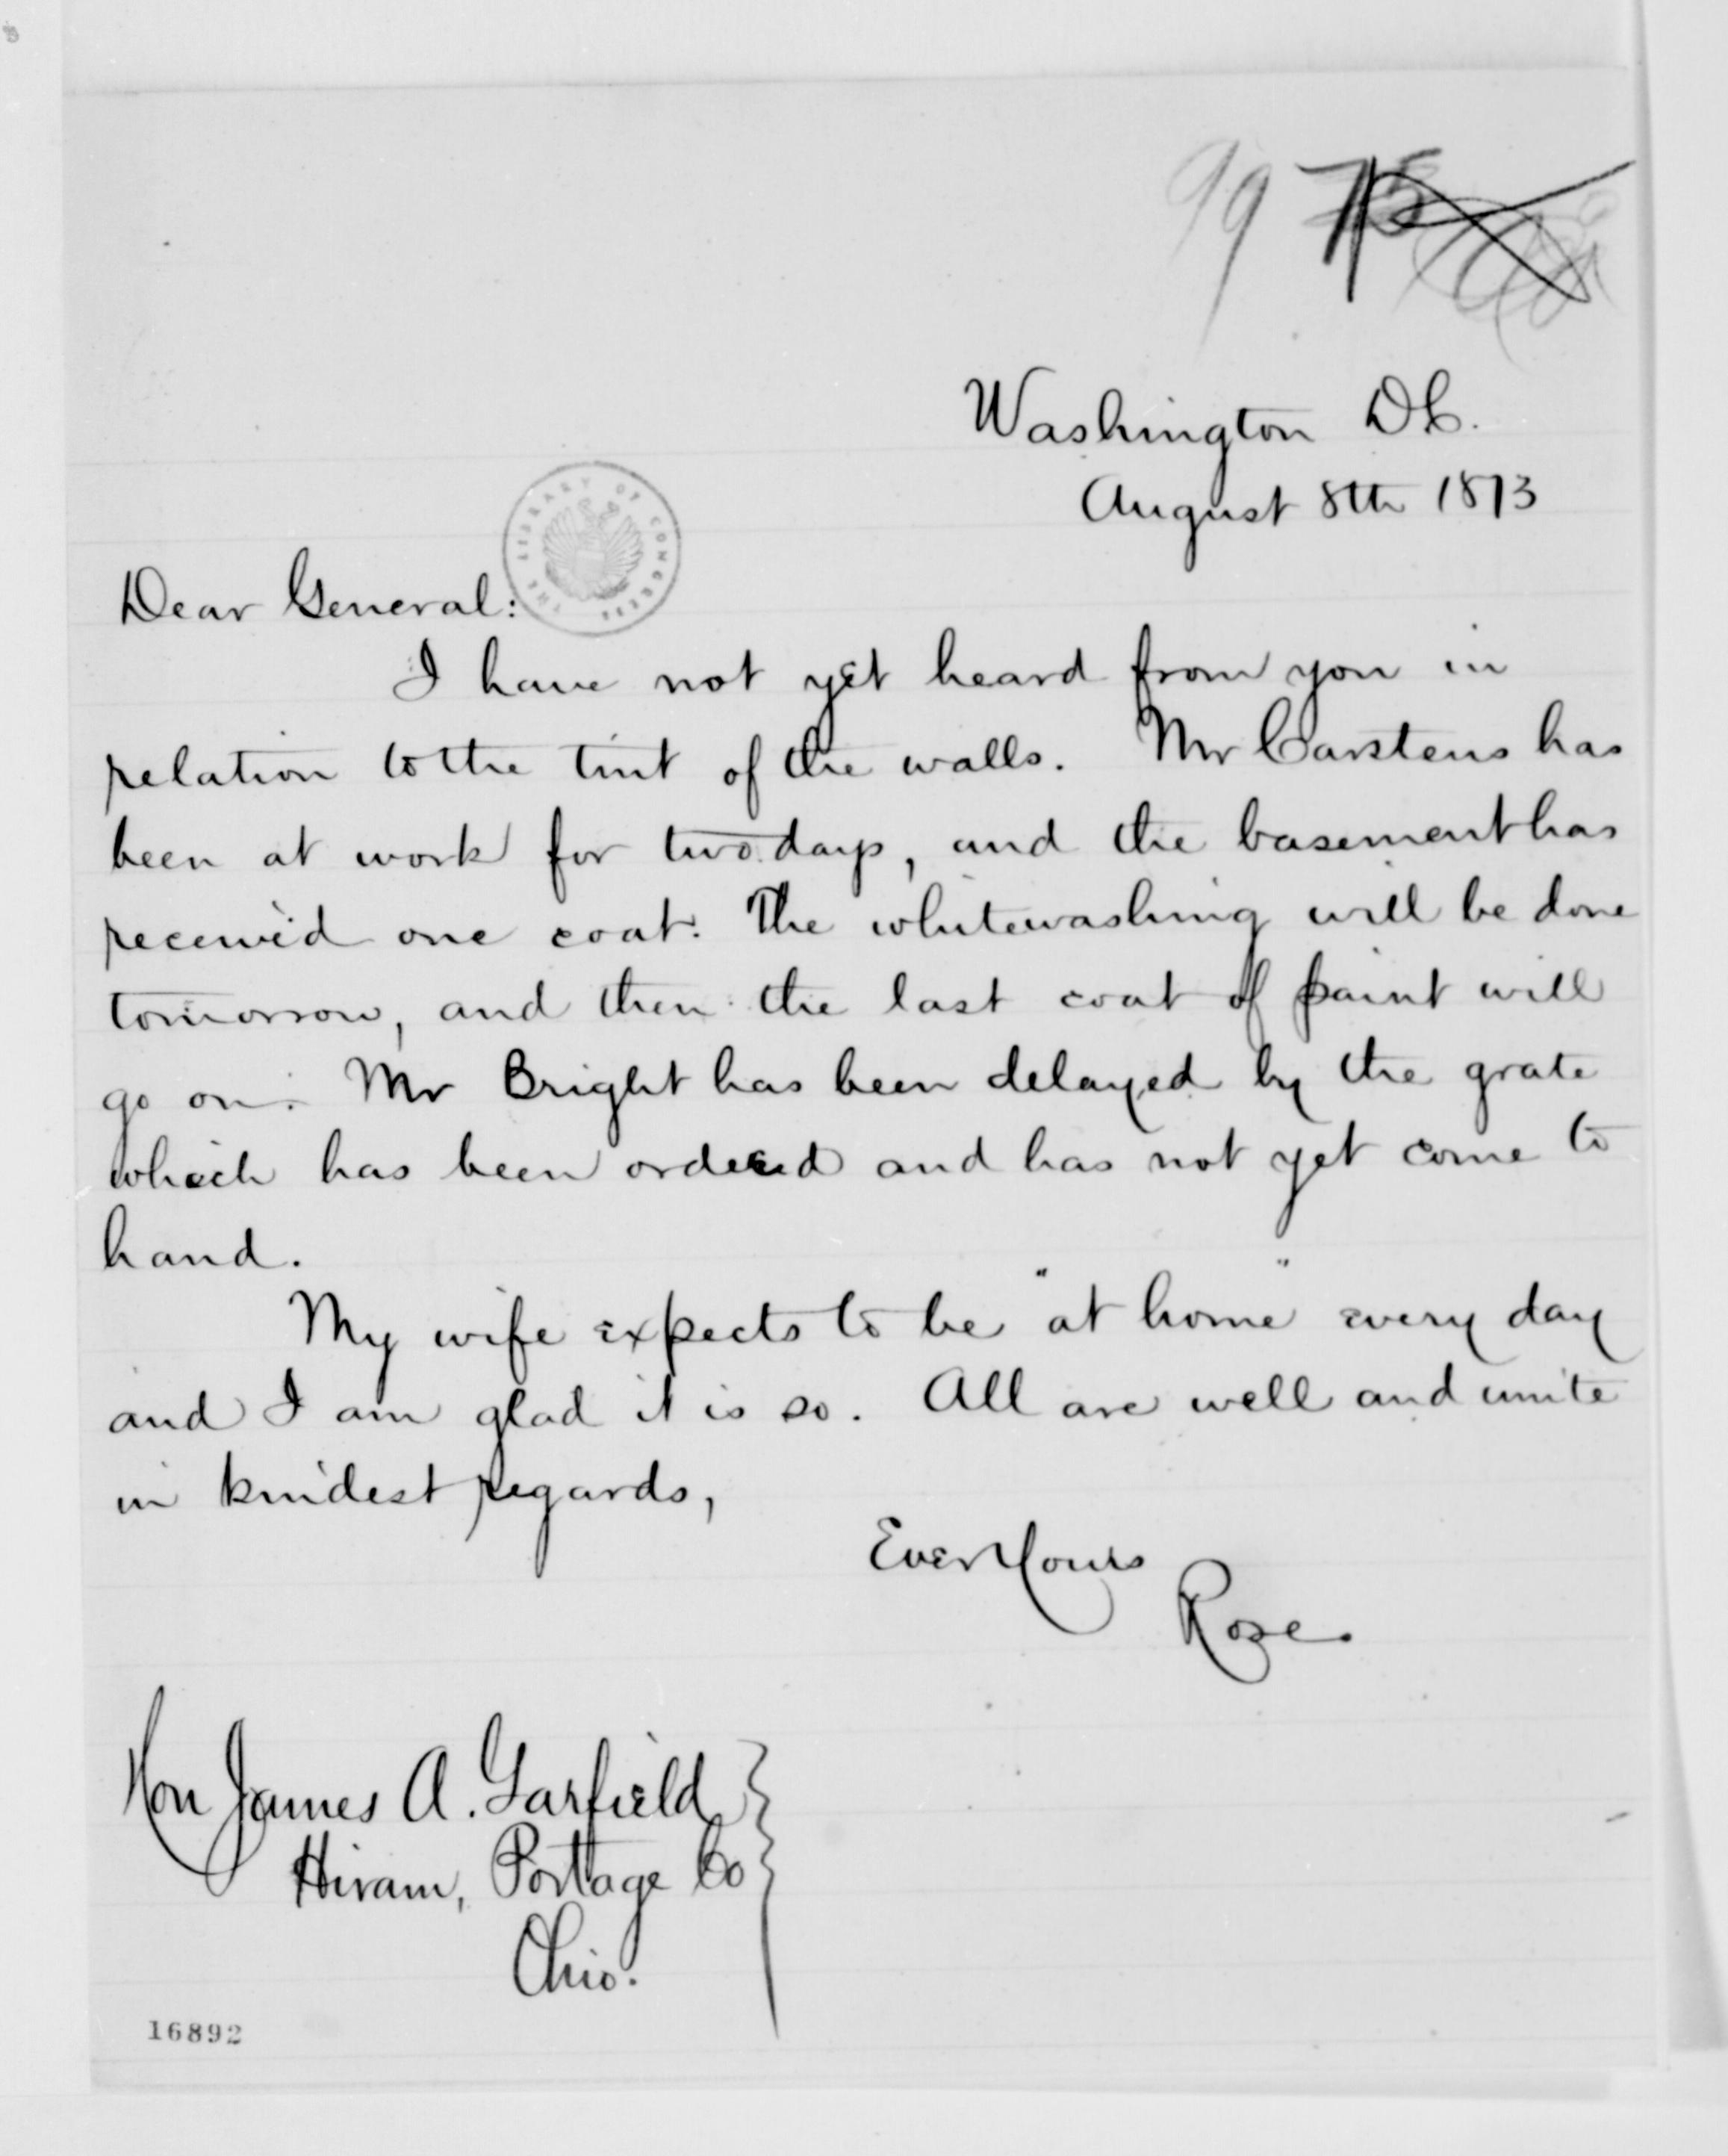 99
Washington D.C.
August 8th 1873
THE LIBRARY OF CONGRESS
Dear General:
I have not yet heard from you in
relation to the tint of the walls. Mr Carstens has
been at work for two days, and the basement has
received one coat. The whitewashing will be done
tomorrow, and then the last coat of paint will
go on. Mr Bright has been delayed by the grate
which has been ordered and has not yet come to
hand.
My wife expects to be "at home" every day
and I am glad it is so. All are well and unite
in kindest regards,
Ever Yours
Rose.
Hon James A. Garfield
Hiram, Portage Co
Ohio.
16892